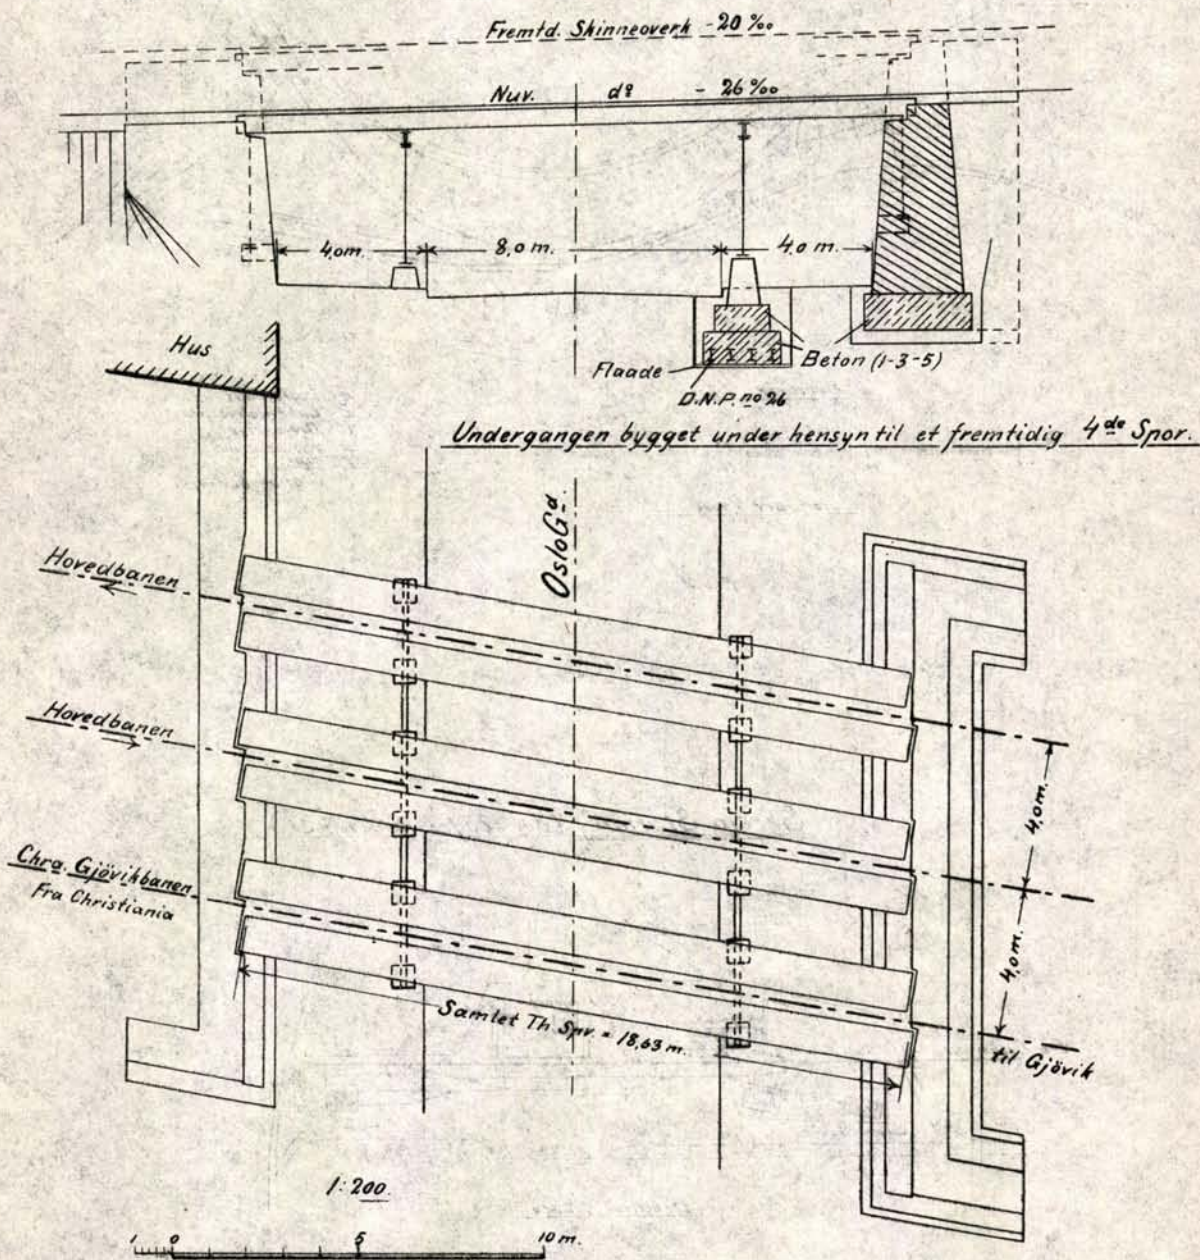 Fremtd. Skinneoverk - 20 ‰
Nuv. dº - 26 ‰
4,0m. 8,0 m. 4,0 m.
Hus
Flaade
Beton (1-3-5)
D.N.P. no 26
Undergangen bygget under hensyn til et fremtidig 4de Spor.
Oslo Gd.
Hovedbanen
Hovedbanen
4,0m.
Chra. Gjövikbanen
Fra Christiania
4,0m.
Samlet Th. Spv. = 18,63 m.
til Gjövik
1:200.
1 0 5 10 m.